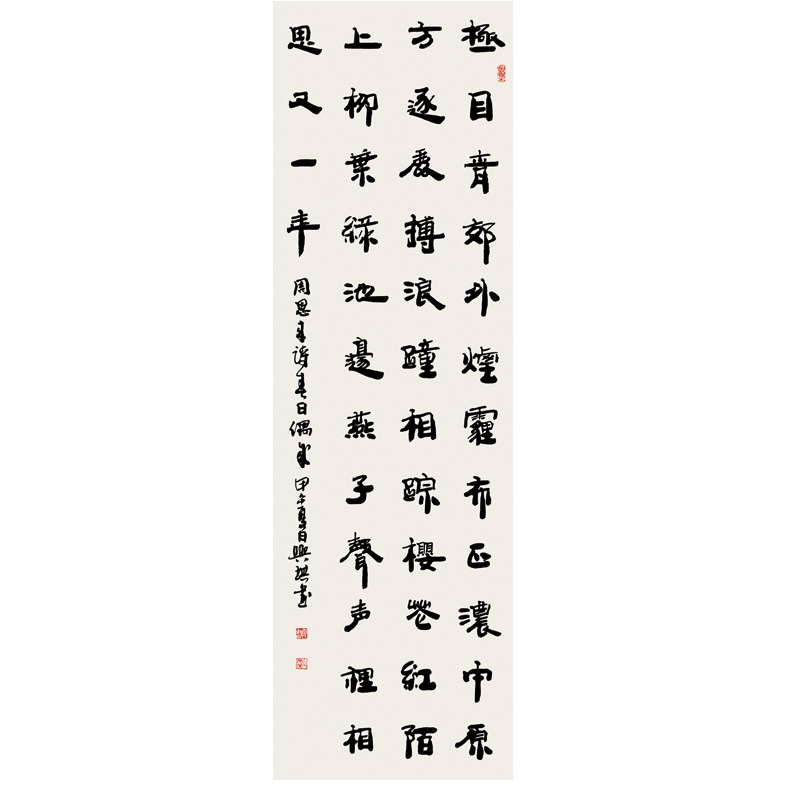 極目青郊外煙霾布正濃中原
方逐鹿搏浪踵相踪櫻花紅陌
上柳葉緑池邊燕子聲声裡相
思又一年
周恩来詩春日偶成 甲午夏日興琪書